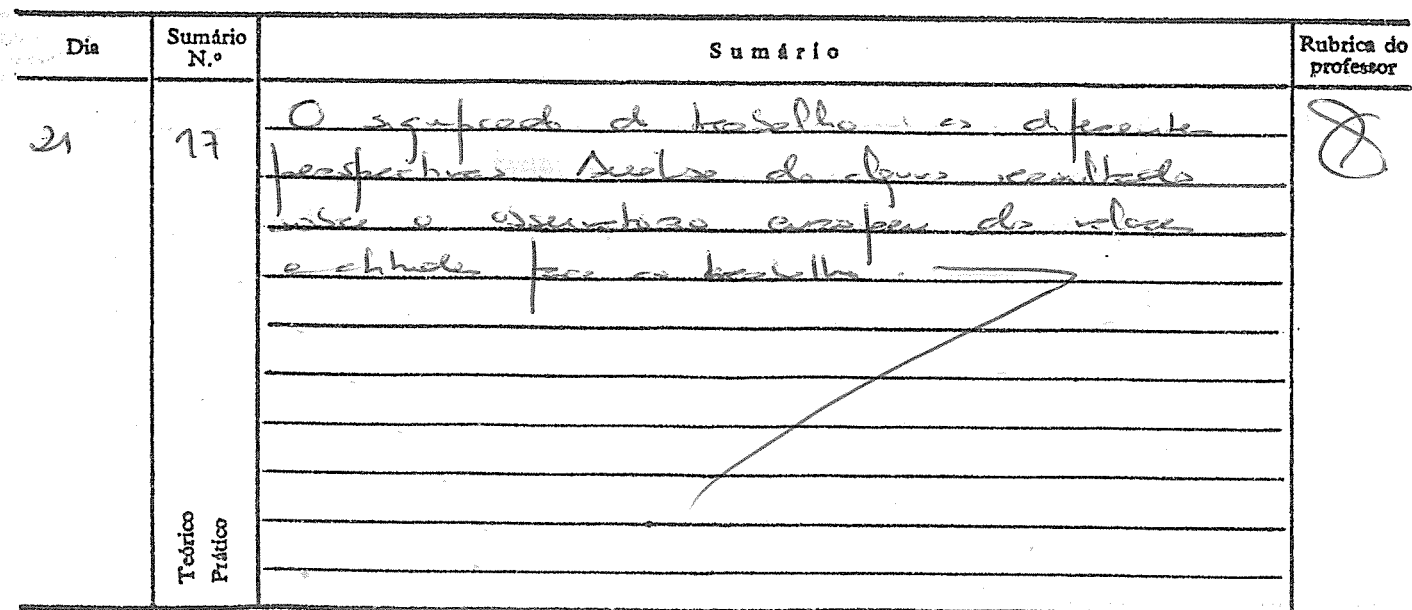 Dia
Sumário N.º
Sumário
Rubrica do professor
21
17
O significado do trabalho: as diferentes
perspectivas. Análise de alguns resultados
sobre o observatório europeu dos valores
e atitudes face ao trabalho.
Teórico
Prático